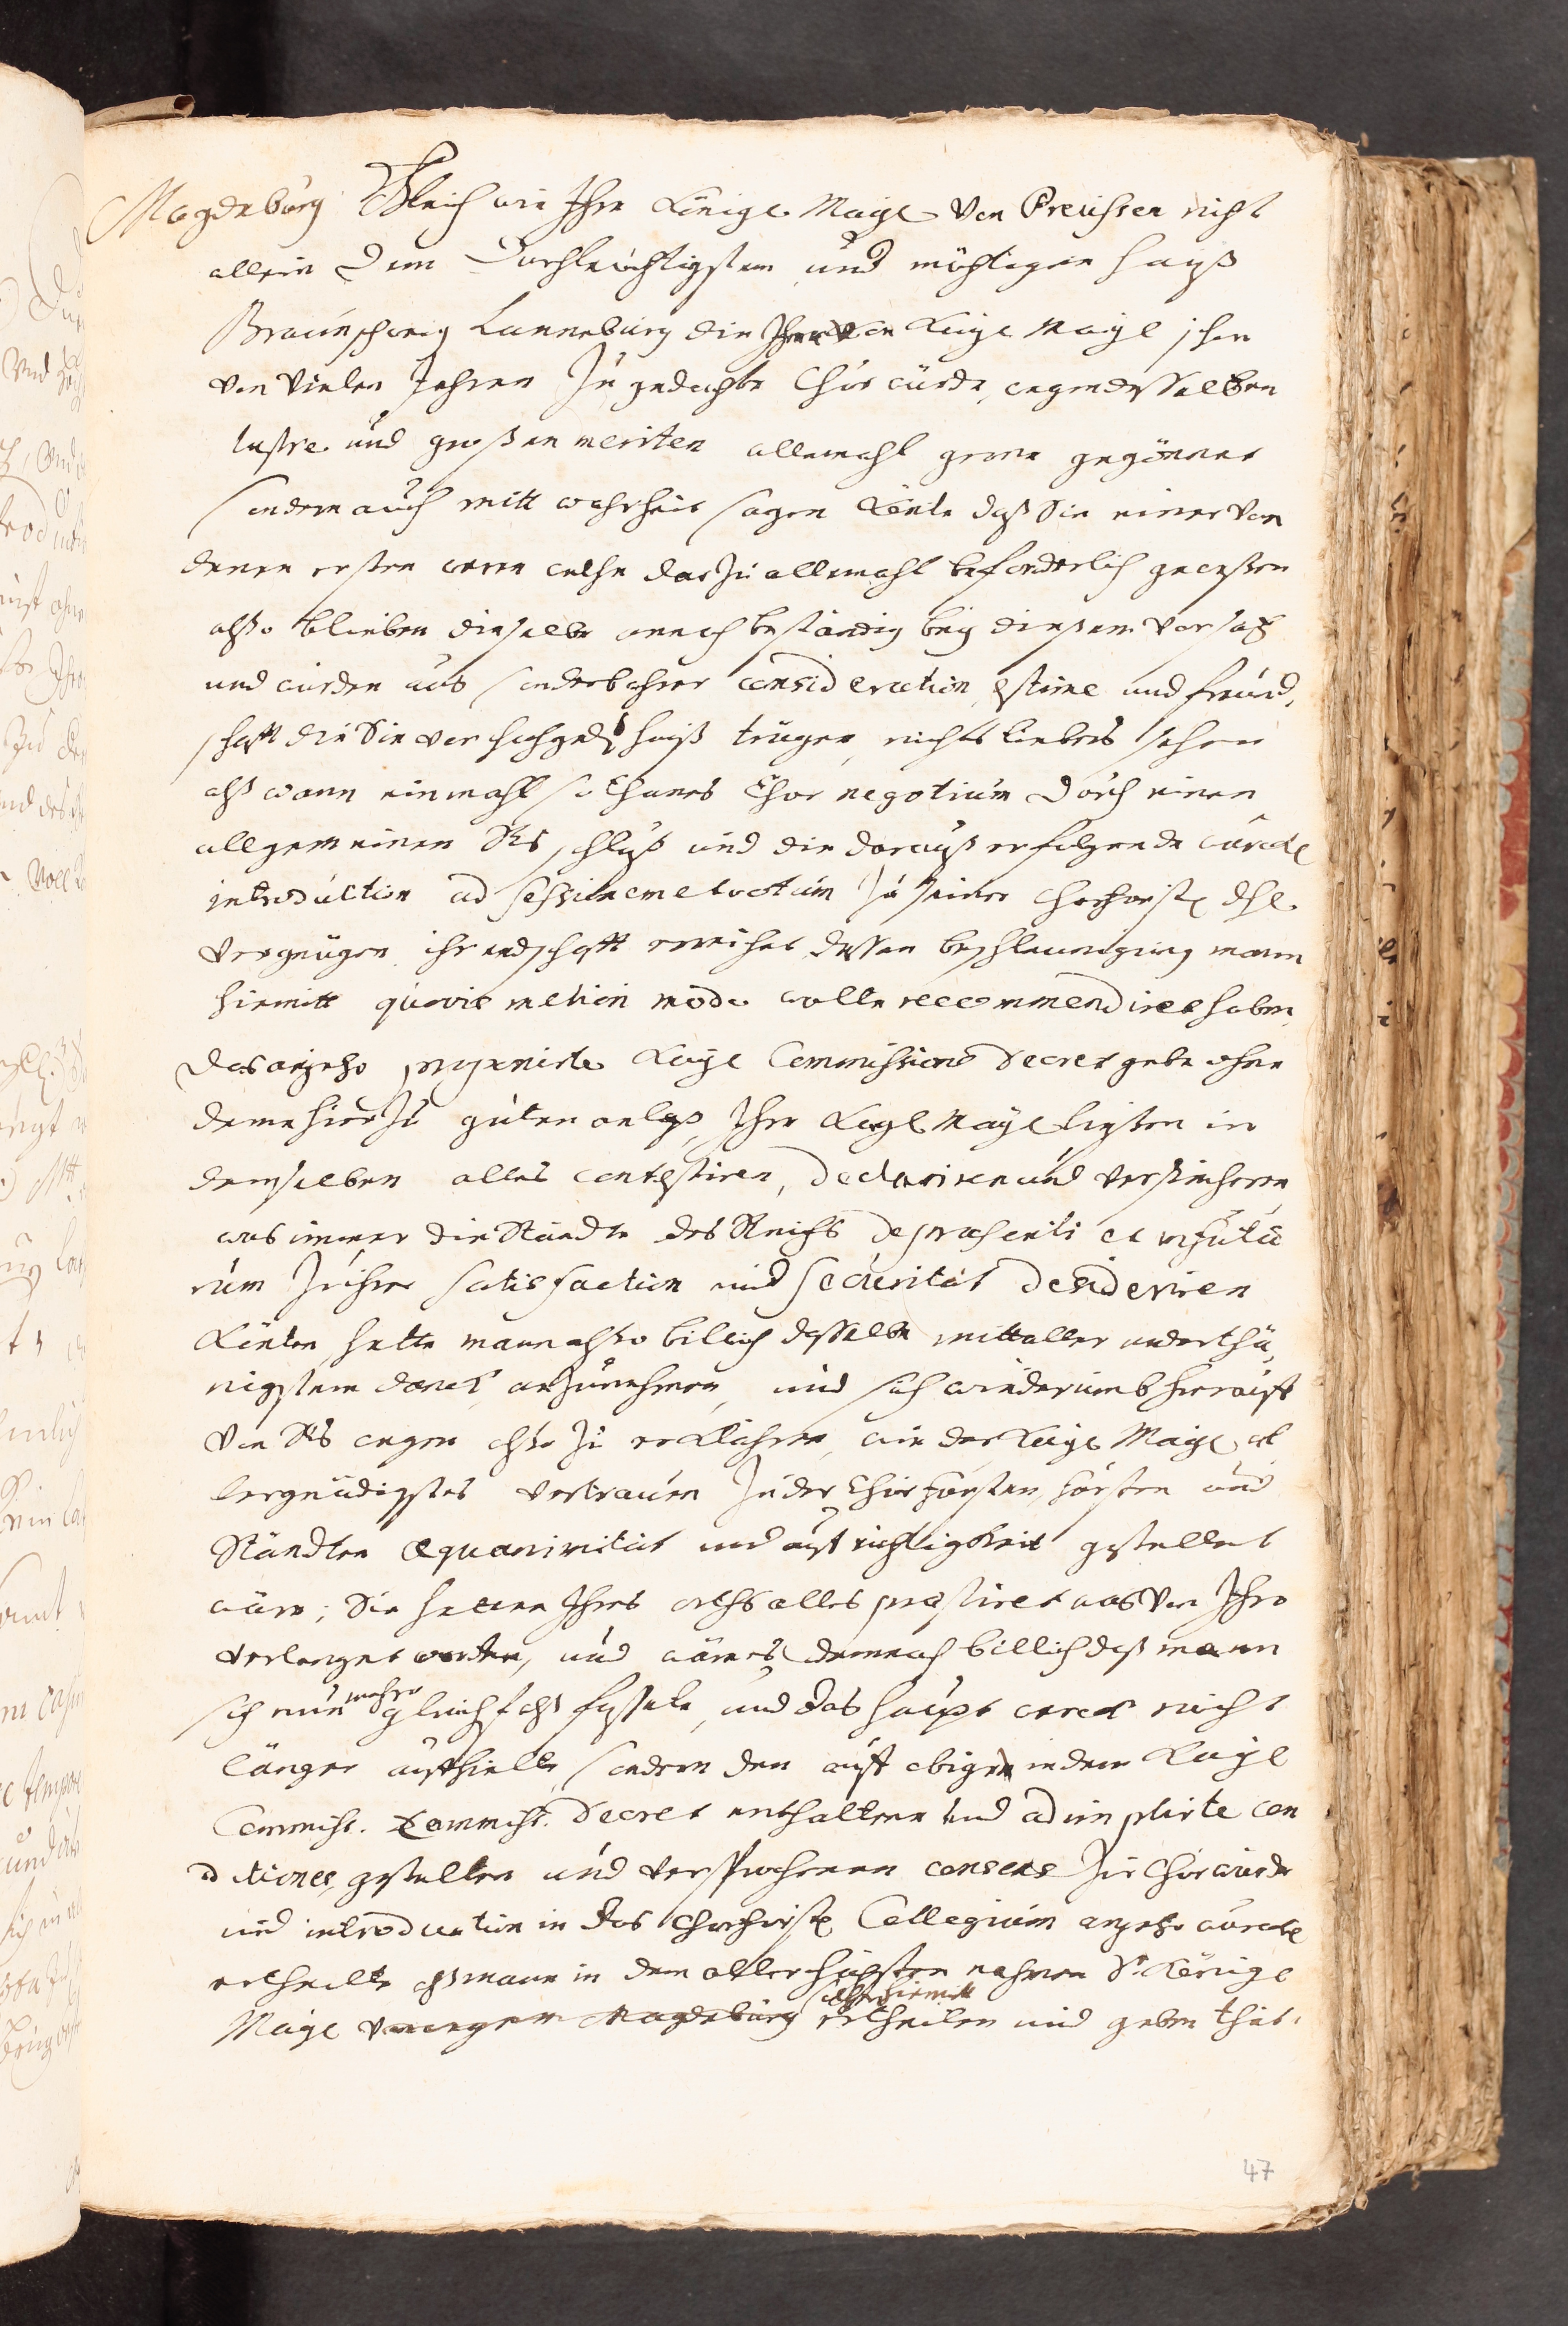 Magdeburg Gleich wie Ihre Königl. Mayt. von Preüssen nicht
allein dem Durchleüchtigsten und mächtigen Hauß
Braunschweig Lunneburg die Ihro von Kayl. Mayt schon
von vielen Jahren zu gedachte Chur würde, wegen desselben
lustre und großen meriten allemahl gerne gegönnet
sondern auch mitt wahrheit sagen könte daß Sie einer von
denen ersten were welche darzu allemahl beforderlich geweßen
alßo blieben dieselbe annoch beständig bey dießem vorsatz
und würden aus sonderbahrer consideration, estime und freünd,
schafft die Sie vor hochged. Hauß trügen, nichts liebers sehen
alß wann einmahl sothanes Chur negotium durch einen
allgemeinen Rs. schluß und die darauß erfolgende würckl.
introduction ad sessionem et votum zu seiner Churfürstl. dhl.
vergnügen ihr endschafft erreichet, dessen beschleunigung mann
hiemitt quovis meliori modo wolte recommendiret haben,
das anjetzo Kayl. Commissions Decret gebe ohne
deme hierzu guten anlaß, Ihre Kayl. Mayt. ließen in
demselben alles contestiren, declariren und versicheren
was immer die Stände des Reichs de praesenti et in futu
rum zu ihrer satisfaction und securität desideriren
könten, hette mann alßo billich dasselbe mitt aller underthä,
nigstem danck anzunehmen, und sich wiederumb hierauff
von Rs. wegen alßo zu erklähren, wie der Kayl. Mayt. al
lergnädigstes vertrauen zu der Churfürsten, fürsten und
Ständten aequanimität und auffrichtigkeit gestellet
wäre; Sie hetten Ihres orths alles praestiret was von Ihro
verlanget worden, und wäre es demnach billich daß mann
sich nun mehro gleichfals fassete, und das haupt werck nicht
länger auffhielte, sondern den auff obigen in dem Kayl.
Commiss. Commiss. Decret enthaltene und adimplirte con
ditiones, gestellten und versprochenen consens zur Churwürde
und introduction in das Churfürstl. Collegium anjetzo würckl.
ertheilte, alß mann in dem allerhöchsten nahmen Sr. Königl.
Mayt. von wegen Magdeburg solchen hiemitt ertheilen und geben thät.
47